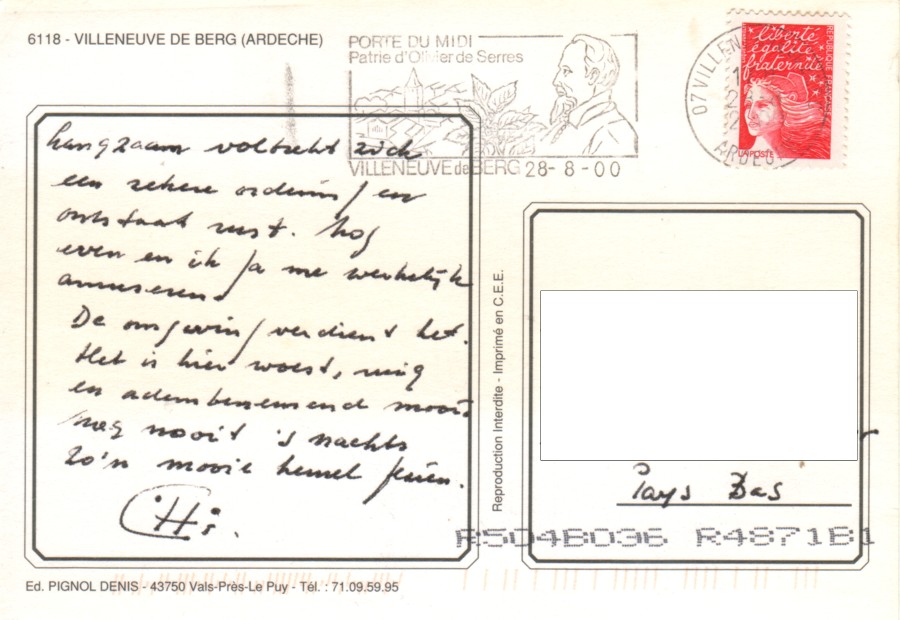 6118 - VILLENEUVE DE BERG (ARDECHE)
PORTE DU MIDI
Patrie d'Olivier de Serres
VILLENEUVE de BERG 28-8-00
07 VILLEN
ARDECHE
liberté
égalité
fraternité
RÉPUBLIQUE FRANÇAISE
LA POSTE
Langzaam voltrekt zich
een zekere ordening en
ontstaat rust. Nog
even en ik ga me werkelijk
amuseren.
De omgeving verdient het.
Het is hier woest, ruig
en adembenemend mooi
nog nooit 's nachts
zo'n mooie hemel gezien.
Reproduction Interdite - Imprimé en C.E.E.
Pays Bas
R5D4B036 R4871B1
Ed. PIGNOL DENIS - 43750 Vals-Près-Le Puy - Tél. : 71.09.59.95